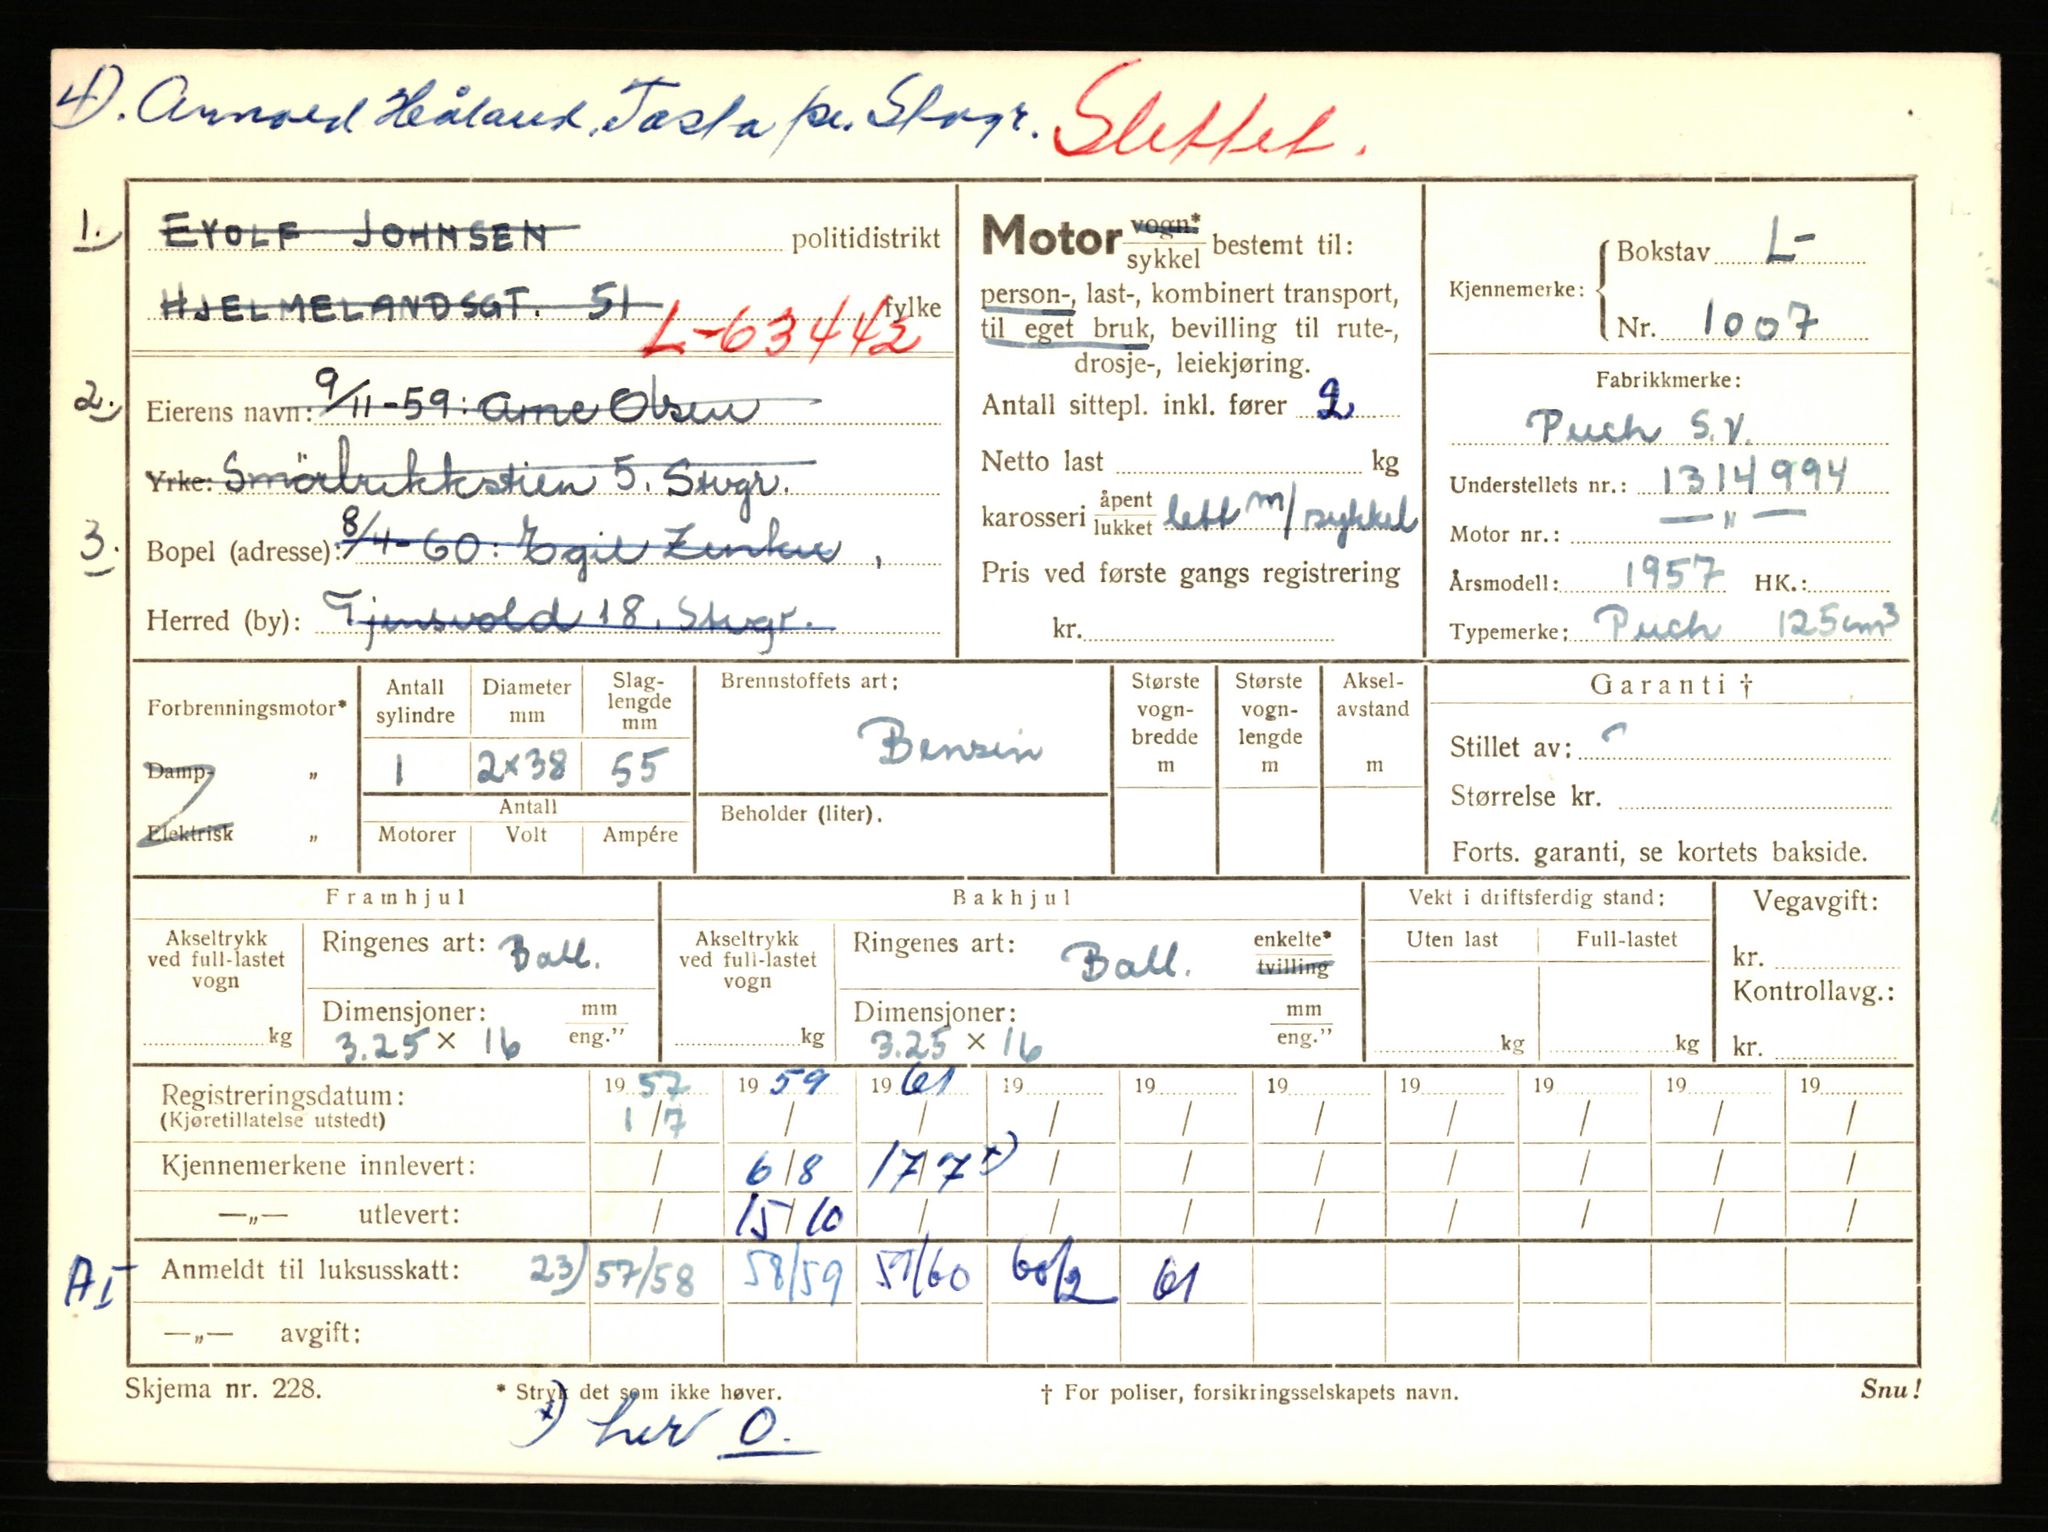 4). Arnold Håland, Tasta pr. Stvgr. Slettet.
1. EYOLF JOHNSEN politidistrikt
HJELMELANDSGT. 51 fylke
L-63442
2. Eierens navn: 9/11-59: Arne Olsen
Yrke: Smörbukkstien 5. Stvgr.
3. Bopel (adresse): 8/4-60: Egil
Herred (by): Tjensvold 18. Stvgr.
Motor vogn* sykkel bestemt til:
person-, last-, kombinert transport,
til eget bruk, bevilling til rute-,
drosje-, leiekjøring.
Antall sittepl. inkl. fører 2
Netto last kg
karosseri åpent lukket lett m/sykkel
Pris ved første gangs registrering
kr.
Kjennemerke: Bokstav L-
Nr. 1007
Fabrikkmerke:
Puch S.V.
Understellets nr.: 1314994
Motor nr.: — " —
Årsmodell: 1957 HK.:
Typemerke: Puch 125cm³
Forbrenningsmotor*
Damp- „
Elektrisk „
Antall sylindre
Diameter mm
Slag-lengde mm
1 2x38 55
Antall
Motorer Volt Ampére
Brennstoffets art:
Bensin
Beholder (liter).
Største vogn-bredde m
Største vogn-lengde m
Aksel-avstand m
Garanti †
Stillet av:
Størrelse kr.
Forts. garanti, se kortets bakside.
Framhjul
Akseltrykk ved full-lastet vogn
kg
Ringenes art: Ball.
Dimensjoner: mm eng.”
3.25 × 16
Bakhjul
Akseltrykk ved full-lastet vogn
kg
Ringenes art: Ball. enkelte* tvilling
Dimensjoner: mm eng.”
3.25 × 16
Vekt i driftsferdig stand:
Uten last Full-lastet
kg kg
Vegavgift:
kr.
Kontrollavg.:
kr.
Registreringsdatum: 19 57 19 59 19 61 19 19 19 19 19 19 19
(Kjøretillatelse utstedt) 1/7 / / / / / / / / /
Kjennemerkene innlevert: / 6/8 17/7 x) / / / / / / /
—„— utlevert: / 15/10 / / / / / / / /
AI Anmeldt til luksusskatt: 23) 57/58 58/59 59/60 60/2 61
—„— avgift:
Skjema nr. 228. * Stryk det som ikke høver. † For poliser, forsikringsselskapets navn. Snu!
x) her O.